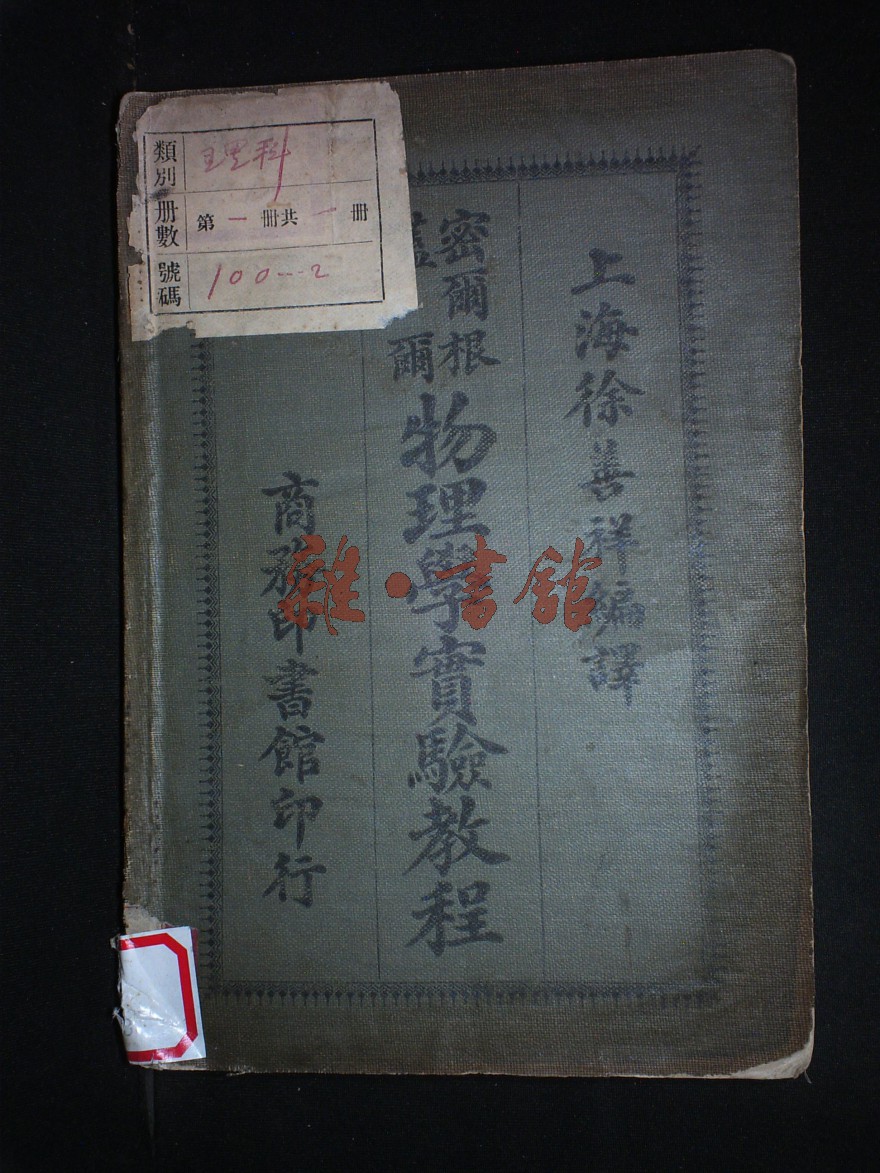 上海徐善祥編譯
密爾根
蓋爾
物理學實驗教程
商務印書館印行
類別 理科
册數 第一册共一册
號碼 100---2
雜·書館